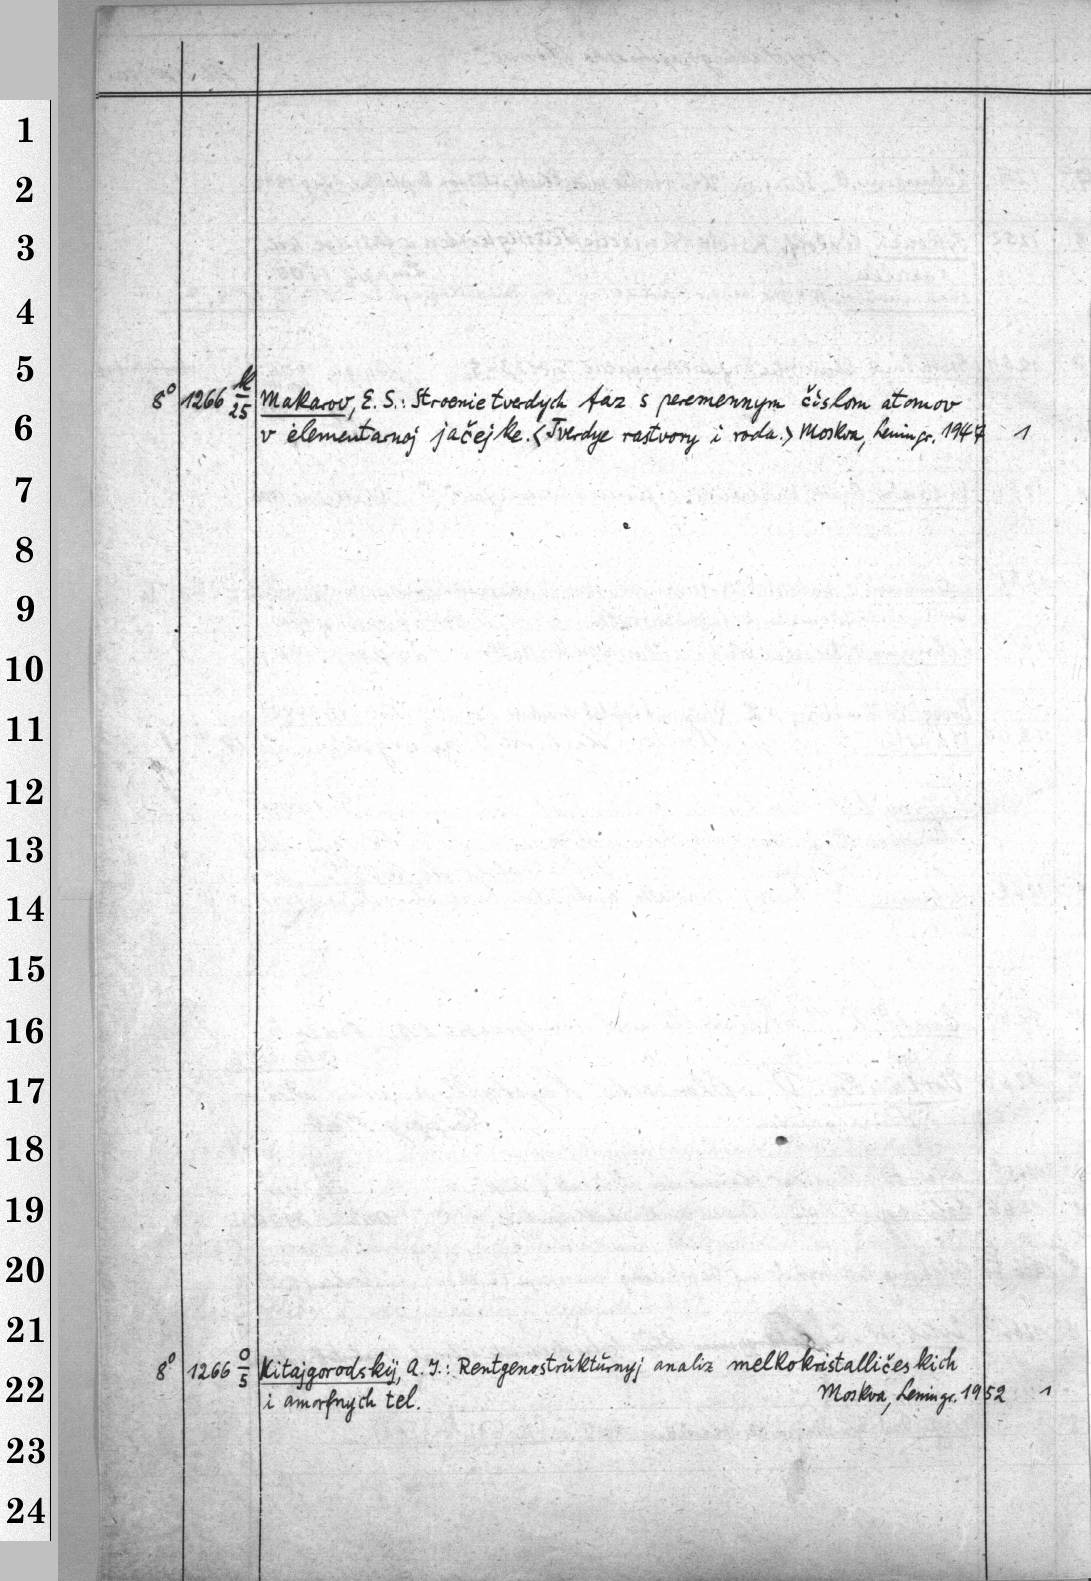 1
2
3
4
5
6
7
8
9
10
11
12
13
14
15
16
17
18
19
20
21
22
23
24
8° 1266 k/25 Makarov, E. S.: Stroenie tverdych faz s peremennym čislom atomov
v ėlementarnoj jačejke. <Tverdye rastvory i roda.> Moskva, Leningr. 1947 1
8° 1266 0/5 Kitajgorodskij, A. I.: Rentgenostrŭktŭrnyj analiz melkokristalličeskich
i amorfnych tel. Moskva, Leningr. 1952 1